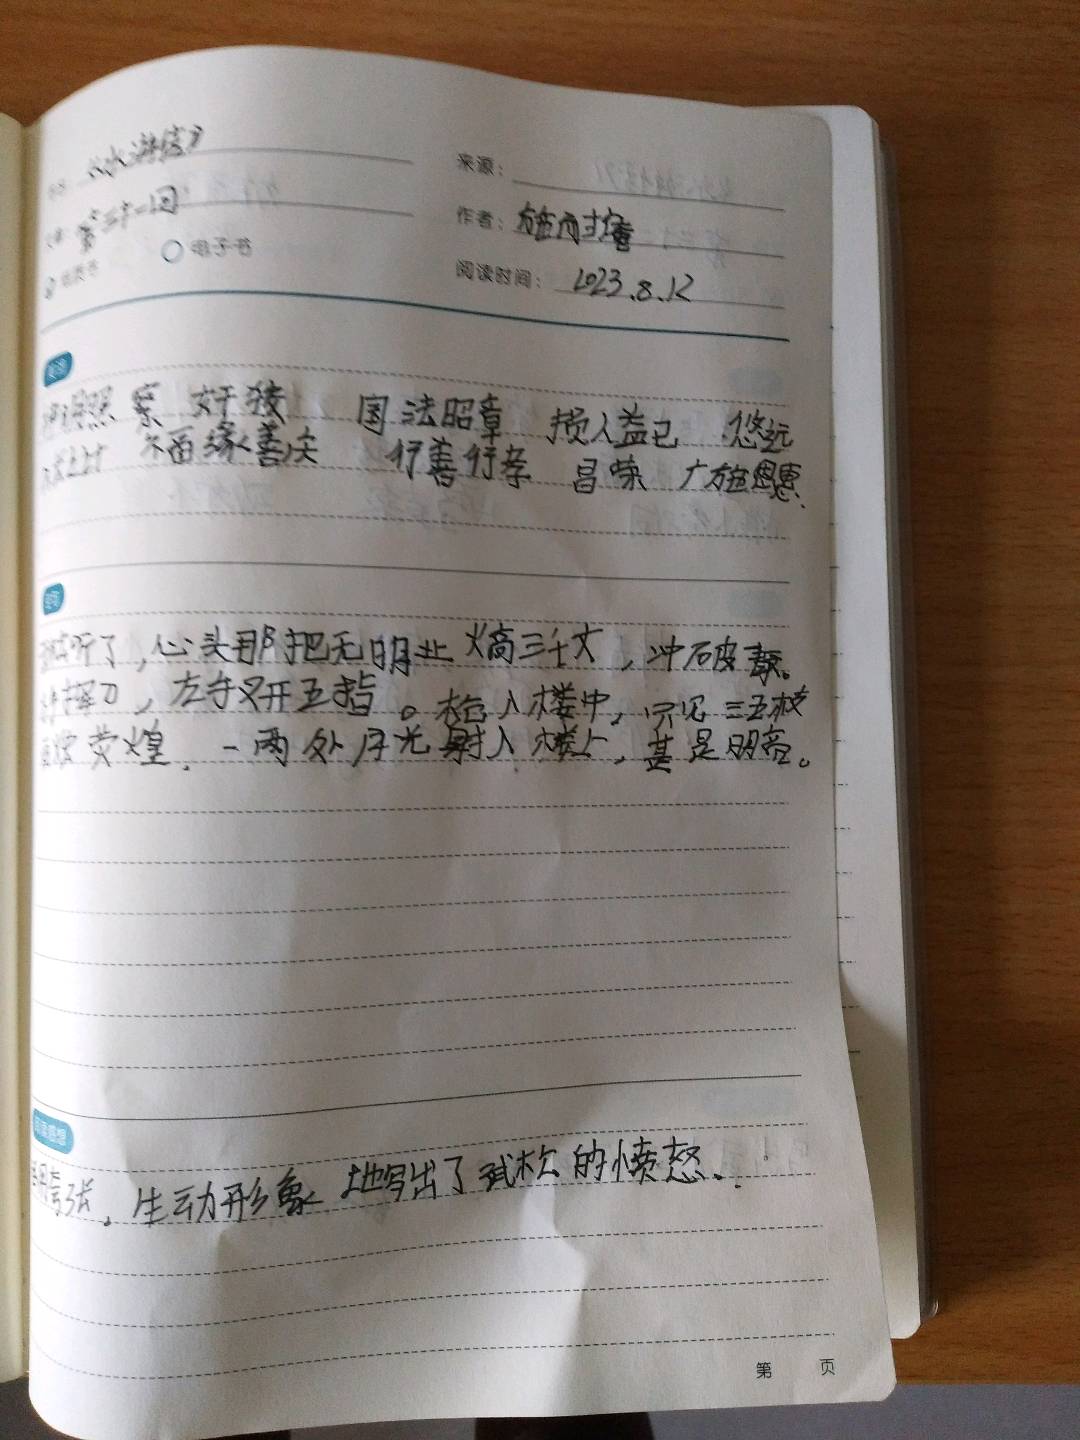 《水浒传》
来源:
第三十一回
作者: 施耐庵
电子书
阅读时间: 2023.8.12
照 察 奸狡 国法昭章 损人益己 悠远
不面缘善庆 行善行孝 昌荣 广施恩惠.
听了,心头那把无明业火熵三千丈,冲破青天。
握刀,左手叉开五指。抢入楼中,只见三五枝
荧煌.一两处月光射入楼上,甚是明亮。
阅读感想
夸张,生动形象地写出了武松的愤怒.
第 页